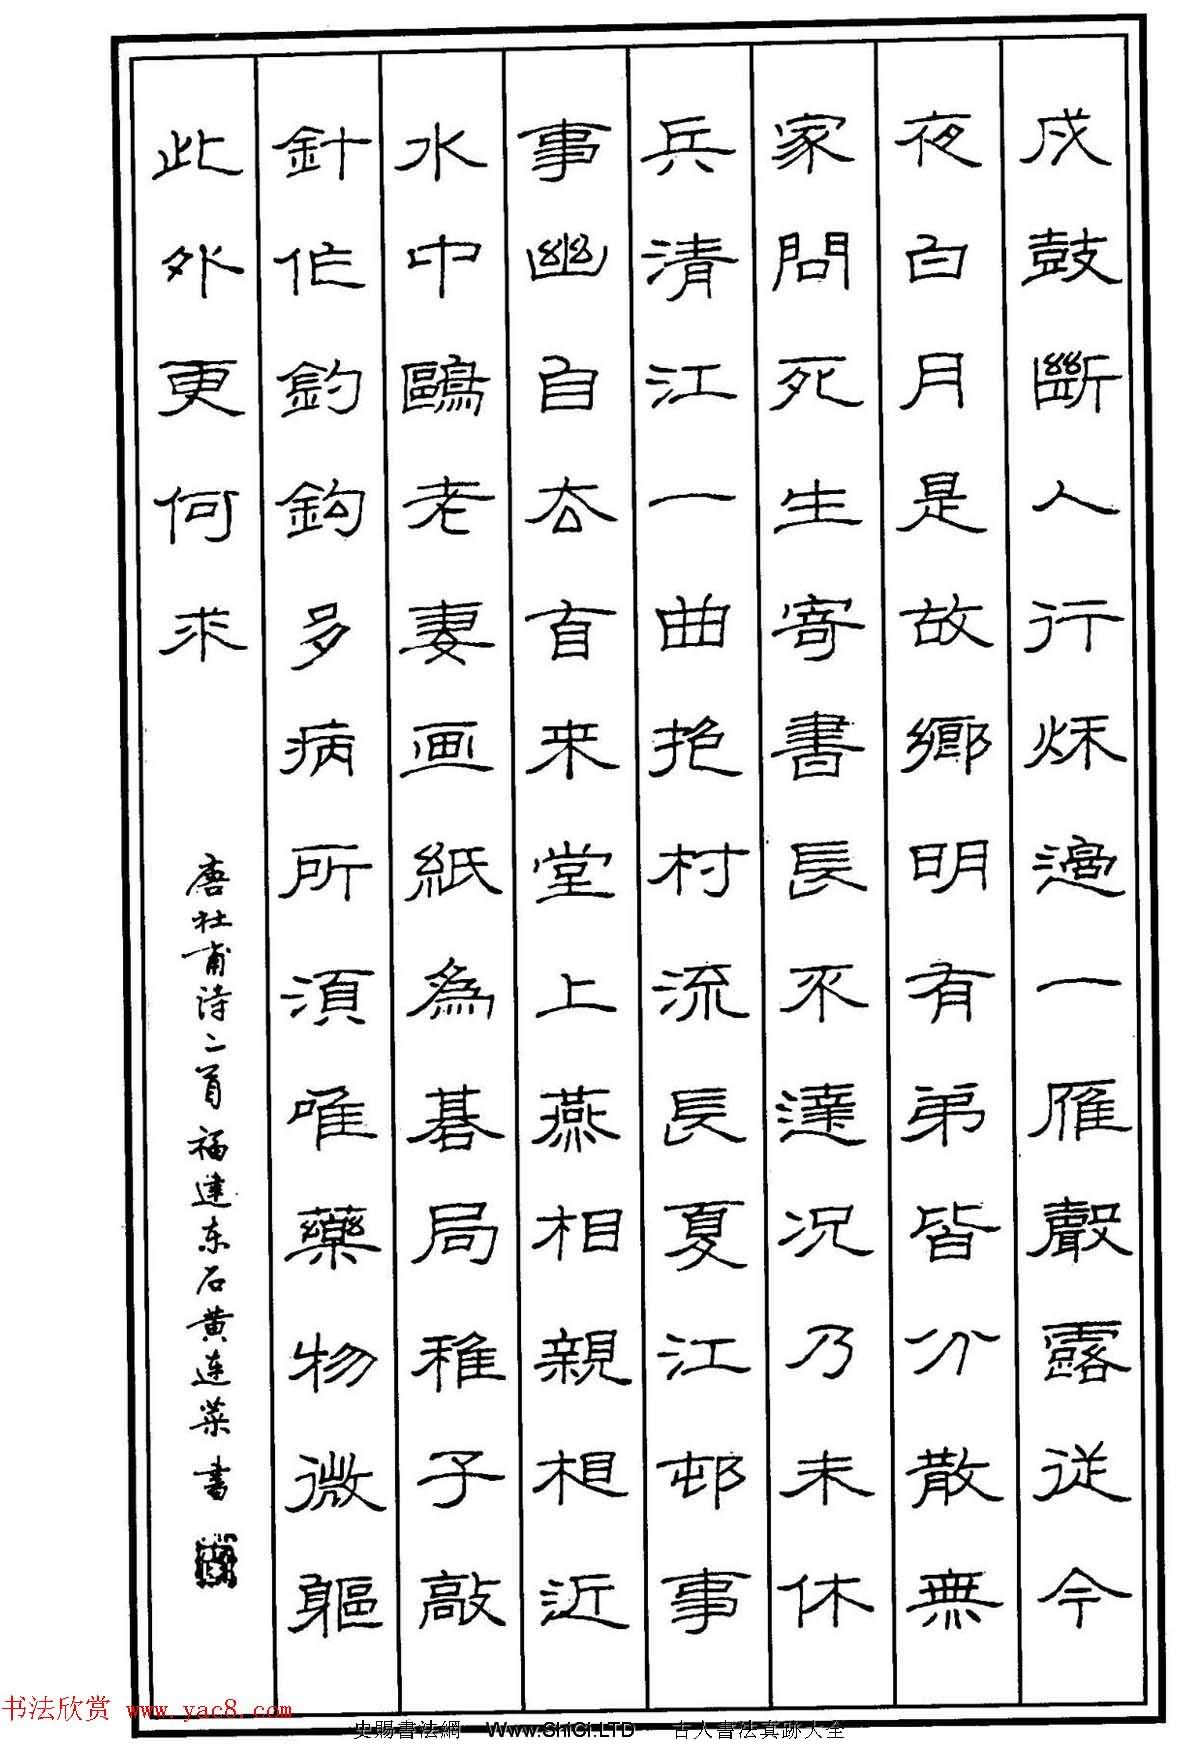 戍鼓斷人行秌邊一雁聲露從今
夜白月是故鄉明有弟皆分散無
家問死生寄書長不達況乃未休
兵清江一曲抱村流長夏江邨事
事幽自去自来堂上燕相親相近
水中鷗老妻画紙為碁局稚子敲
針作釣鈎多病所須唯藥物微軀
此外更何求
唐杜甫诗二首福建东石黄连菜书
书法欣赏 www.yac8.com
史賜書法網 Www.ShiCi.LTD 古人書法真跡大全